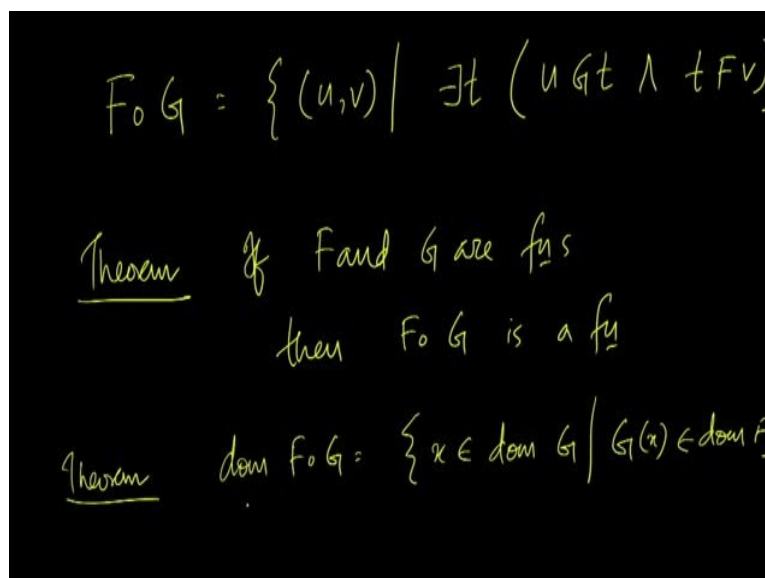 F o G = { (u,v) | ∃t ( u G t ∧ t F v )
Theorem If F and G are fns
then F o G is a fn
Theorem dom F o G = { x ∈ dom G | G(x) ∈ dom F